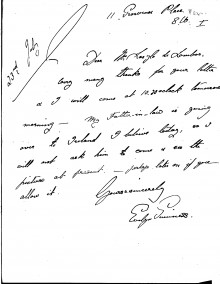 11, Grosvenor Place,
S.W. 1
23rd July
Dear Mr. Laszlo de Lombos,
Very many thanks for your letter
& I will come at 10.30 o'clock tomorrow
morning — My Father-in-law is going
over to Ireland I believe today, so I
will not ask him to come & see the
picture at present — perhaps later on if you
allow it.
Yours sincerely
Evelyn Guinness